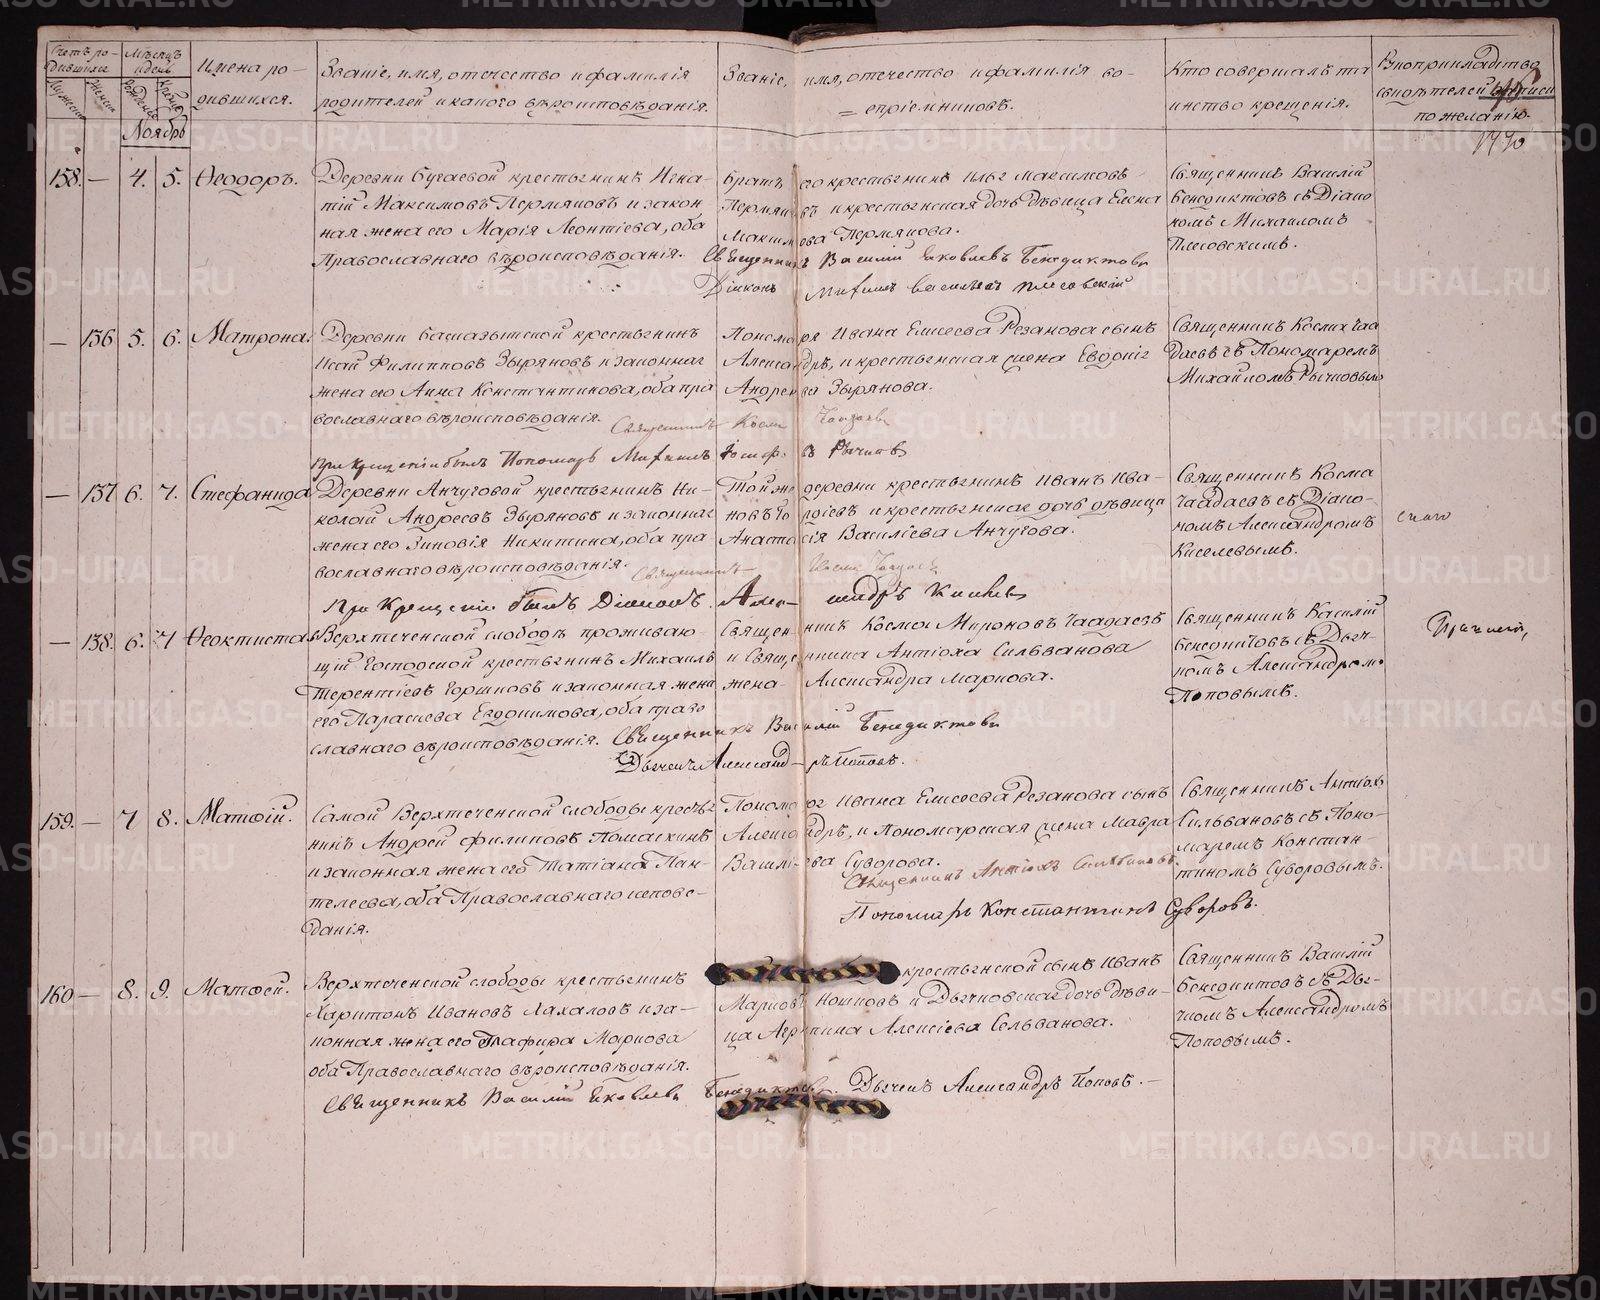 Счетъ ро-
дившихся
Мѣсяцъ
и день
Имена ро-
дившихся.
Званіе, имя, отечество и фамилія
родителей и какого вѣроисповѣданія.
Званіе, имя, отечество и фамилія во-
спріемниковъ.
Кто совершалъ та
инство крещенія.
Рукоприкладство
свидѣтелей записи
по желанію.
Ноябрь
158. — 4. 5. Ѳеодоръ.
Деревни Бугаевой крестьянинъ Игна-
тій Максимовъ Пермяковъ и закон
ная жена его Марія Леонтіева, оба
Православнаго вѣроисповѣданія.
Братъ его крестьянинъ Илья Максимовъ
Пермяковъ и крестьянская дочь дѣвица Елена
Максимова Пермякова.
Священникъ Василій Яковлевъ Бенедиктовъ
Діаконъ Михаилъ Васильевъ Плесовскій
Священникъ Василій
Бенедиктовъ съ Діако
номъ Михаиломъ
Плесовскимъ.
— 136 5. 6. Матрона.
Деревни крестьянинъ
Исай Филипповъ Зыряновъ и законная
жена его Анна Константинова, оба пра
вославнаго вѣроисповѣданія.
Пономаря Ивана Елисеева Резанова сынъ
Александръ, и крестьянская жена Евдокія
Андреева Зырянова.
Священникъ Косма Чаадаевъ
При крещеніи былъ Пономарь Михаилъ Рычковъ
Священникъ Косма Чаа
даевъ съ Пономаремъ
Михайломъ Рычковымъ
— 137 6. 7. Стефанида
Деревни Анчуговой крестьянинъ Ни-
колай Андреевъ Зыряновъ и законная
жена его Зиновія Никитина, оба пра
вославнаго вѣроисповѣданія.
Той же деревни крестьянинъ Иванъ Ива-
новъ и крестьянская дочь дѣвица
Анастасія Василіева Анчугова.
Священникъ Косма Чаадаевъ
При Крещеніи былъ Діаконъ Александръ Киселевъ
Священникъ Косма
Чаадаевъ съ Діако-
номъ Александромъ
Киселевымъ.
— 138. 6. 7 Ѳеоктиста
Верхтеченской слободѣ прожива­ю-
щій Господской крестьянинъ Михаилъ
Терентіевъ Горшковъ и законная жена
его Параскева Евдокимова, оба право
славнаго вѣроисповѣданія.
Священникъ Косма Мироновъ Чаадаевъ
и Священника Антіоха Сильванова
жена Александра Маркова.
Священникъ Василій Бенедиктовъ
Дьячекъ Александръ Поповъ.
Священникъ Василій
Бенедиктовъ съ Дьяч-
комъ Александромъ
Поповымъ.
159. — 7 8. Матѳій.
Самой Верхтеченской слободы кресть­я
нинъ Андрей Филиповъ Помаскинъ
и законная жена его Татіана Пан-
телеева, оба Православнаго испове-
данія.
Пономаря Ивана Елисеева Резанова сынъ
Александръ, и Пономарская жена Мавра
Васильева Суворова.
Священникъ Антіохъ Сильвановъ.
Пономарь Константинъ Суворовъ.
Священникъ Антіохъ
Сильвановъ съ Поно-
маремъ Констан-
тиномъ Суворовымъ.
160 — 8. 9. Матѳей.
Верхтеченской слободы крестьянинъ
Харитонъ Ивановъ Лахаловъ и за-
конная жена его Глафира Маркова
оба Православнаго вѣроисповѣданія.
крестьянской сынъ Иванъ
Марковъ и Дьячковская дочь дѣви-
ца Агрипина Алексіева Сельванова.
Священникъ Василій Яковлевъ Бенедиктовъ. Дьячекъ Александръ Поповъ. —
Священникъ Василій
Бенедиктовъ съ Дья-
чкомъ Александромъ
Поповымъ.
METRIKI.GASO-URAL.RU